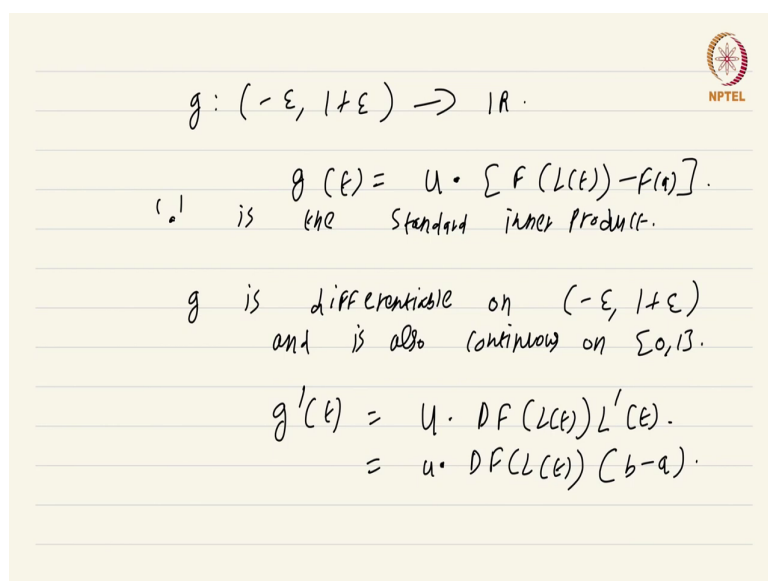 NPTEL
g : (-ε, 1+ε) -> IR.
g(t) = u • [F(L(t)) - F(a)].
'•' is the standard inner product.
g is differentiable on (-ε, 1+ε)
and is also continuous on [0,1].
g'(t) = u • DF(L(t)) L'(t).
= u • DF(L(t)) (b-a).